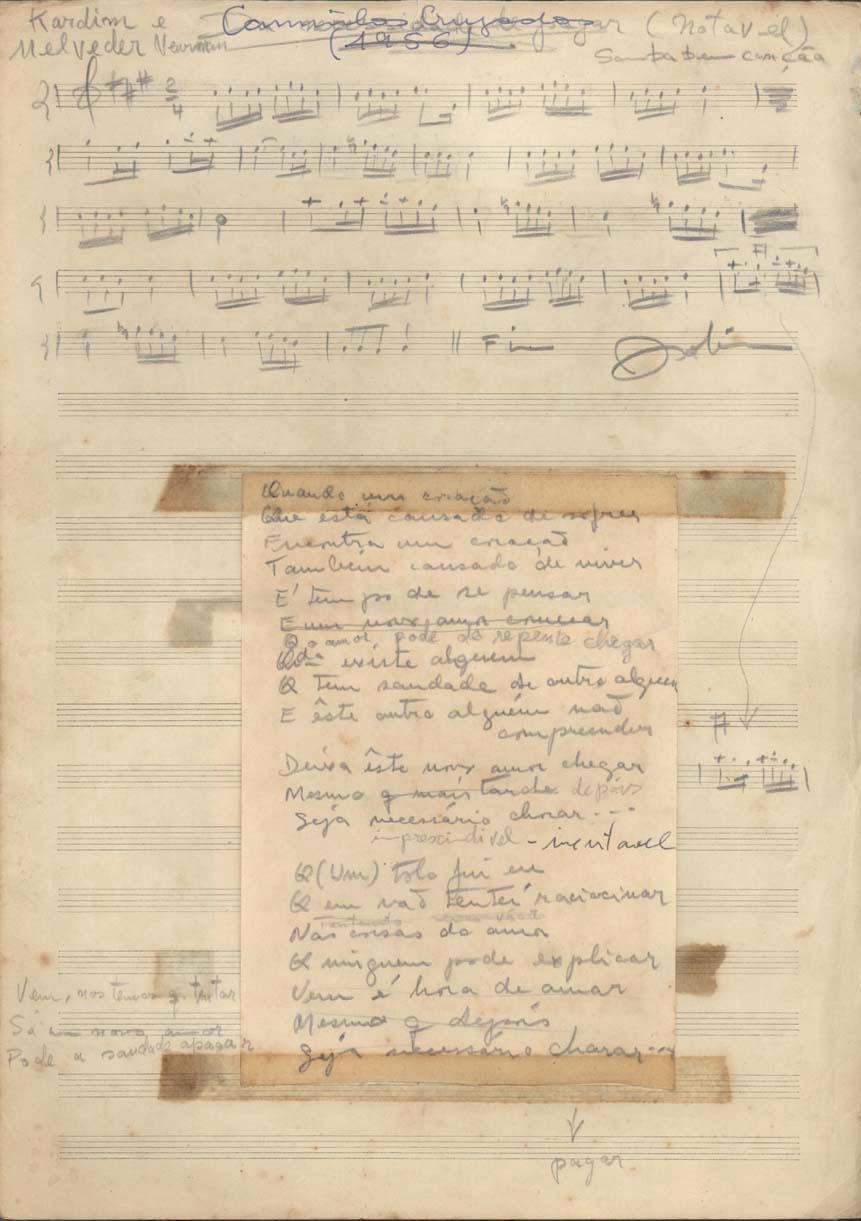 Kardim e
Melveder Newman
Caminhos Cruzados
pagar (Notavel)
(1956)
Samba canção
2
4
Fi
Quando um coração
Que está cansado de sofrer
Encontra um coração
Também cansado de viver
É tempo de se pensar
E um novo amor
Q o amor pode de repente chegar
Qdo existe alguem
Q tem saudade de outro alguem
E êste outro alguém não
compreender
Deixa êste novo amor chegar
Mesmo q mais tarde depois
Seja necessário chorar...
imprescindivel - inevitavel
Q (Um) tolo fui eu
Q em vão tentei raciocinar
Tentando
Nas coisas do amor
Q ninguem pode explicar
Vem é hora de amar
Mesmo q depois
Seja necessário chorar...
Vem, nos temos q tentar
Só um novo amor
Pode a saudade apagar
pagar